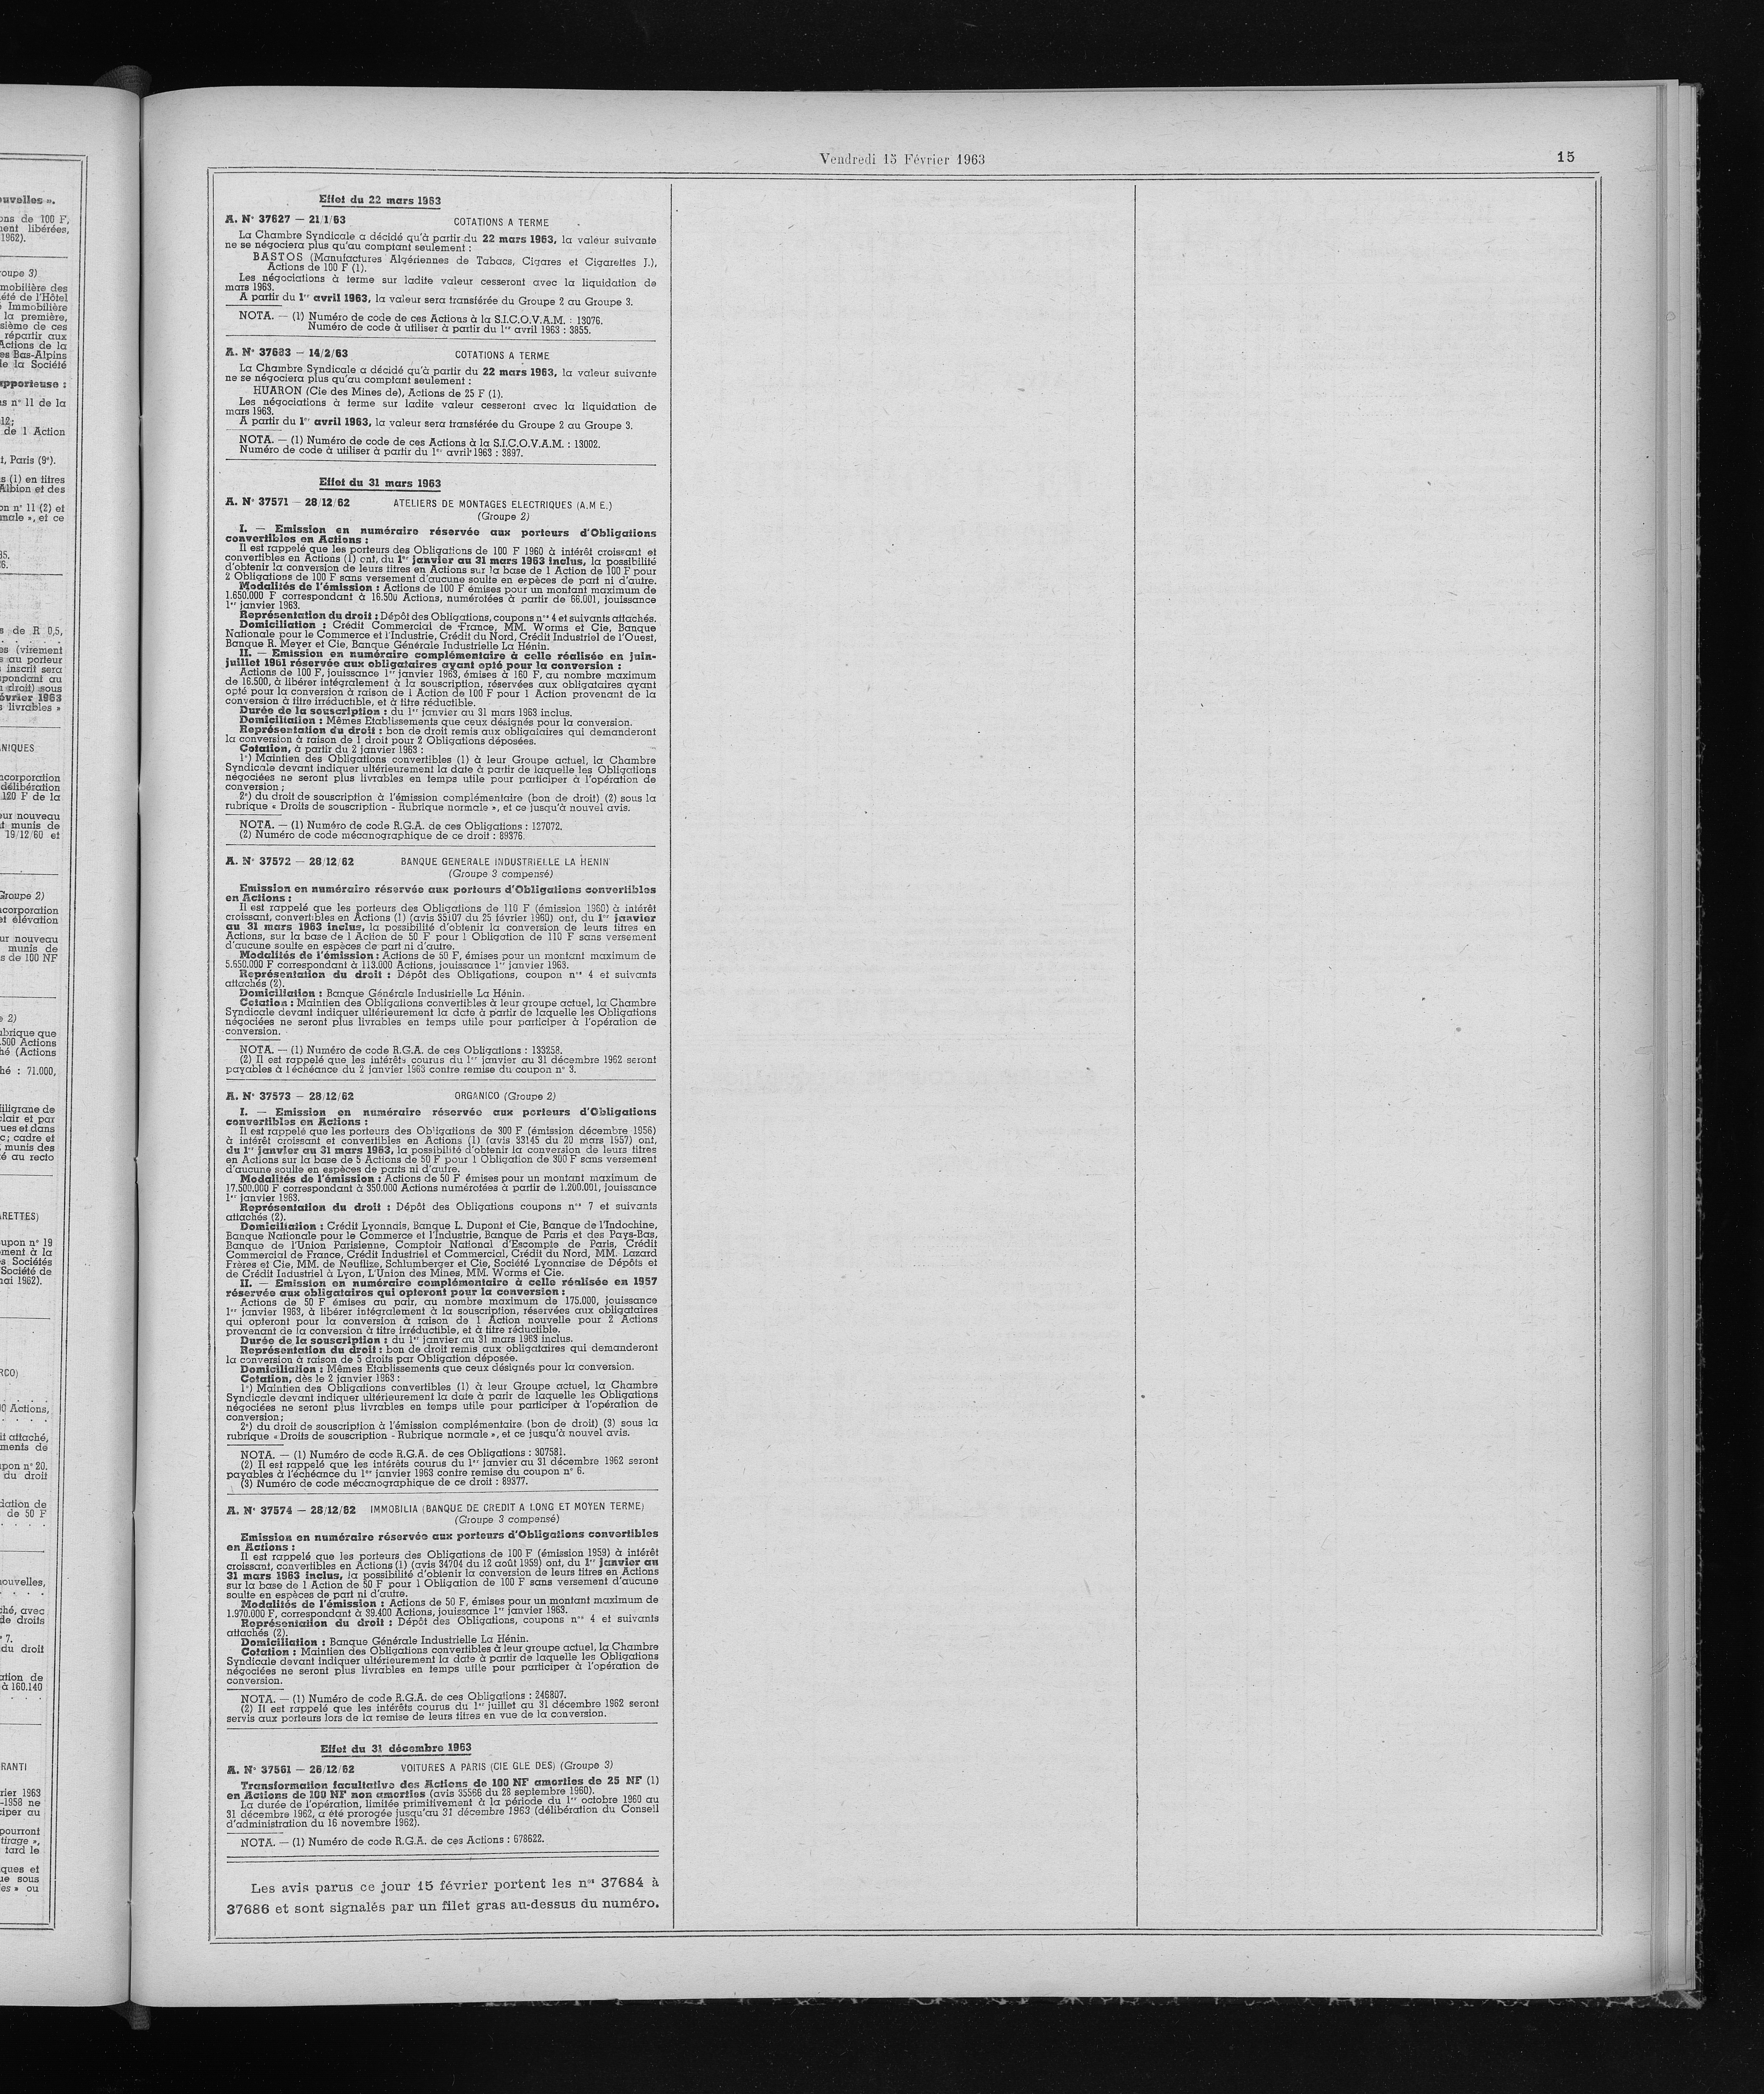 Vendredi 15 Février 1963
15
Effet du 22 mars 1963
A. N° 37627 — 21/1/63 COTATIONS A TERME
La Chambre Syndicale a décidé qu'à partir du 22 mars 1963, la valeur suivante
ne se négociera plus qu'au comptant seulement :
BASTOS (Manufactures Algériennes de Tabacs, Cigares et Cigarettes J.),
Actions de 100 F (1).
Les négociations à terme sur ladite valeur cesseront avec la liquidation de
mars 1963.
A partir du 1er avril 1963, la valeur sera transférée du Groupe 2 au Groupe 3.
NOTA. — (1) Numéro de code de ces Actions à la S.I.C.O.V.A.M. : 13076.
Numéro de code à utiliser à partir du 1er avril 1963 : 3855.
A. N° 37683 — 14/2/63 COTATIONS A TERME
La Chambre Syndicale a décidé qu'à partir du 22 mars 1963, la valeur suivante
ne se négociera plus qu'au comptant seulement :
HUARON (Cie des Mines de), Actions de 25 F (1).
Les négociations à terme sur ladite valeur cesseront avec la liquidation de
mars 1963.
A partir du 1er avril 1963, la valeur sera transférée du Groupe 2 au Groupe 3.
NOTA. — (1) Numéro de code de ces Actions à la S.I.C.O.V.A.M. : 13002.
Numéro de code à utiliser à partir du 1er avril 1963 : 3897.
Effet du 31 mars 1963
A. N° 37571 — 28/12/62 ATELIERS DE MONTAGES ELECTRIQUES (A.M E.)
(Groupe 2)
I. — Emission en numéraire réservée aux porteurs d'Obligations
convertibles en Actions :
Il est rappelé que les porteurs des Obligations de 100 F 1960 à intérêt croissant et
convertibles en Actions (1) ont, du 1er janvier au 31 mars 1963 inclus, la possibilité
d'obtenir la conversion de leurs titres en Actions sur la base de 1 Action de 100 F pour
2 Obligations de 100 F sans versement d'aucune soulte en espèces de part ni d'autre.
Modalités de l'émission : Actions de 100 F émises pour un montant maximum de
1.650.000 F correspondant à 16.500 Actions, numérotées à partir de 66.001, jouissance
1er janvier 1963.
Représentation du droit : Dépôt des Obligations, coupons nos 4 et suivants attachés.
Domiciliation : Crédit Commercial de France, MM. Worms et Cie, Banque
Nationale pour le Commerce et l'Industrie, Crédit du Nord, Crédit Industriel de l'Ouest,
Banque R. Meyer et Cie, Banque Générale Industrielle La Hénin.
II. — Emission en numéraire complémentaire à celle réalisée en juin-
juillet 1961 réservée aux obligataires ayant opté pour la conversion :
Actions de 100 F, jouissance 1er janvier 1963, émises à 160 F, au nombre maximum
de 16.500, à libérer intégralement à la souscription, réservées aux obligataires ayant
opté pour la conversion à raison de 1 Action de 100 F pour 1 Action provenant de la
conversion à titre irréductible, et à titre réductible.
Durée de la souscription : du 1er janvier au 31 mars 1963 inclus.
Domiciliation : Mêmes Etablissements que ceux désignés pour la conversion.
Représentation du droit : bon de droit remis aux obligataires qui demanderont
la conversion à raison de 1 droit pour 2 Obligations déposées.
Cotation, à partir du 2 janvier 1963 :
1°) Maintien des Obligations convertibles (1) à leur Groupe actuel, la Chambre
Syndicale devant indiquer ultérieurement la date à partir de laquelle les Obligations
négociées ne seront plus livrables en temps utile pour participer à l'opération de
conversion ;
2°) du droit de souscription à l'émission complémentaire (bon de droit) (2) sous la
rubrique « Droits de souscription - Rubrique normale », et ce jusqu'à nouvel avis.
NOTA. — (1) Numéro de code R.G.A. de ces Obligations : 127072.
(2) Numéro de code mécanographique de ce droit : 89376.
A. N° 37572 — 28/12/62 BANQUE GENERALE INDUSTRIELLE LA HENIN
(Groupe 3 compensé)
Emission en numéraire réservée aux porteurs d'Obligations convertibles
en Actions :
Il est rappelé que les porteurs des Obligations de 110 F (émission 1960) à intérêt
croissant, convertibles en Actions (1) (avis 35107 du 25 février 1960) ont, du 1er janvier
au 31 mars 1963 inclus, la possibilité d'obtenir la conversion de leurs titres en
Actions, sur la base de 1 Action de 50 F pour 1 Obligation de 110 F sans versement
d'aucune soulte en espèces de part ni d'autre.
Modalités de l'émission : Actions de 50 F, émises pour un montant maximum de
5.650.000 F correspondant à 113.000 Actions, jouissance 1er janvier 1963.
Représentation du droit : Dépôt des Obligations, coupon nos 4 et suivants
attachés (2).
Domiciliation : Banque Générale Industrielle La Hénin.
Cotation : Maintien des Obligations convertibles à leur groupe actuel, la Chambre
Syndicale devant indiquer ultérieurement la date à partir de laquelle les Obligations
négociées ne seront plus livrables en temps utile pour participer à l'opération de
conversion.
NOTA. — (1) Numéro de code R.G.A. de ces Obligations : 133258.
(2) Il est rappelé que les intérêts courus du 1er janvier au 31 décembre 1962 seront
payables à l'échéance du 2 janvier 1963 contre remise du coupon n° 3.
A. N° 37573 — 28/12/62 ORGANICO (Groupe 2)
I. — Emission en numéraire réservée aux porteurs d'Obligations
convertibles en Actions :
Il est rappelé que les porteurs des Obligations de 300 F (émission décembre 1956)
à intérêt croissant et convertibles en Actions (1) (avis 33145 du 20 mars 1957) ont,
du 1er janvier au 31 mars 1963, la possibilité d'obtenir la conversion de leurs titres
en Actions sur la base de 5 Actions de 50 F pour 1 Obligation de 300 F sans versement
d'aucune soulte en espèces de parts ni d'autre.
Modalités de l'émission : Actions de 50 F émises pour un montant maximum de
17.500.000 F correspondant à 350.000 Actions numérotées à partir de 1.200.001, jouissance
1er janvier 1963.
Représentation du droit : Dépôt des Obligations coupons nos 7 et suivants
attachés (2).
Domiciliation : Crédit Lyonnais, Banque L. Dupont et Cie, Banque de l'Indochine,
Banque Nationale pour le Commerce et l'Industrie, Banque de Paris et des Pays-Bas,
Banque de l'Union Parisienne, Comptoir National d'Escompte de Paris, Crédit
Commercial de France, Crédit Industriel et Commercial, Crédit du Nord, MM. Lazard
Frères et Cie, MM. de Neuflize, Schlumberger et Cie, Société Lyonnaise de Dépôts et
de Crédit Industriel à Lyon, L'Union des Mines, MM. Worms et Cie.
II. — Emission en numéraire complémentaire à celle réalisée en 1957
réservée aux obligataires qui opteront pour la conversion :
Actions de 50 F émises au pair, au nombre maximum de 175.000, jouissance
1er janvier 1963, à libérer intégralement à la souscription, réservées aux obligataires
qui opteront pour la conversion à raison de 1 Action nouvelle pour 2 Actions
provenant de la conversion à titre irréductible, et à titre réductible.
Durée de la souscription : du 1er janvier au 31 mars 1963 inclus.
Représentation du droit : bon de droit remis aux obligataires qui demanderont
la conversion à raison de 5 droits par Obligation déposée.
Domiciliation : Mêmes Etablissements que ceux désignés pour la conversion.
Cotation, dès le 2 janvier 1963 :
1°) Maintien des Obligations convertibles (1) à leur Groupe actuel, la Chambre
Syndicale devant indiquer ultérieurement la date à parir de laquelle les Obligations
négociées ne seront plus livrables en temps utile pour participer à l'opération de
conversion;
2°) du droit de souscription à l'émission complémentaire (bon de droit) (3) sous la
rubrique « Droits de souscription - Rubrique normale », et ce jusqu'à nouvel avis.
NOTA. — (1) Numéro de code R.G.A. de ces Obligations : 307581.
(2) Il est rappelé que les intérêts courus du 1er janvier au 31 décembre 1962 seront
payables à l'échéance du 1er janvier 1963 contre remise du coupon n° 6.
(3) Numéro de code mécanographique de ce droit : 89377.
A. N° 37574 — 28/12/62 IMMOBILIA (BANQUE DE CREDIT A LONG ET MOYEN TERME)
(Groupe 3 compensé)
Emission en numéraire réservée aux porteurs d'Obligations convertibles
en Actions :
Il est rappelé que les porteurs des Obligations de 100 F (émission 1959) à intérêt
croissant, convertibles en Actions (1) (avis 34704 du 12 août 1959) ont, du 1er janvier au
31 mars 1963 inclus, la possibilité d'obtenir la conversion de leurs titres en Actions
sur la base de 1 Action de 50 F pour 1 Obligation de 100 F sans versement d'aucune
soulte en espèces de part ni d'autre.
Modalités de l'émission : Actions de 50 F, émises pour un montant maximum de
1.970.000 F, correspondant à 39.400 Actions, jouissance 1er janvier 1963.
Représentation du droit : Dépôt des Obligations, coupons nos 4 et suivants
attachés (2).
Domiciliation : Banque Générale Industrielle La Hénin.
Cotation : Maintien des Obligations convertibles à leur groupe actuel, la Chambre
Syndicale devant indiquer ultérieurement la date à partir de laquelle les Obligations
négociées ne seront plus livrables en temps utile pour participer à l'opération de
conversion.
NOTA. — (1) Numéro de code R.G.A. de ces Obligations : 246807.
(2) Il est rappelé que les intérêts courus du 1er juillet au 31 décembre 1962 seront
servis aux porteurs lors de la remise de leurs titres en vue de la conversion.
Effet du 31 décembre 1963
A. N° 37561 — 26/12/62 VOITURES A PARIS (CIE GLE DES) (Groupe 3)
Transformation facultative des Actions de 100 NF amorties de 25 NF (1)
en Actions de 100 NF non amorties (avis 35566 du 28 septembre 1960).
La durée de l'opération, limitée primitivement à la période du 1er octobre 1960 au
31 décembre 1962, a été prorogée jusqu'au 31 décembre 1963 (délibération du Conseil
d'administration du 16 novembre 1962).
NOTA. — (1) Numéro de code R.G.A. de ces Actions : 678622.
Les avis parus ce jour 15 février portent les nos 37684 à
37686 et sont signalés par un filet gras au-dessus du numéro.